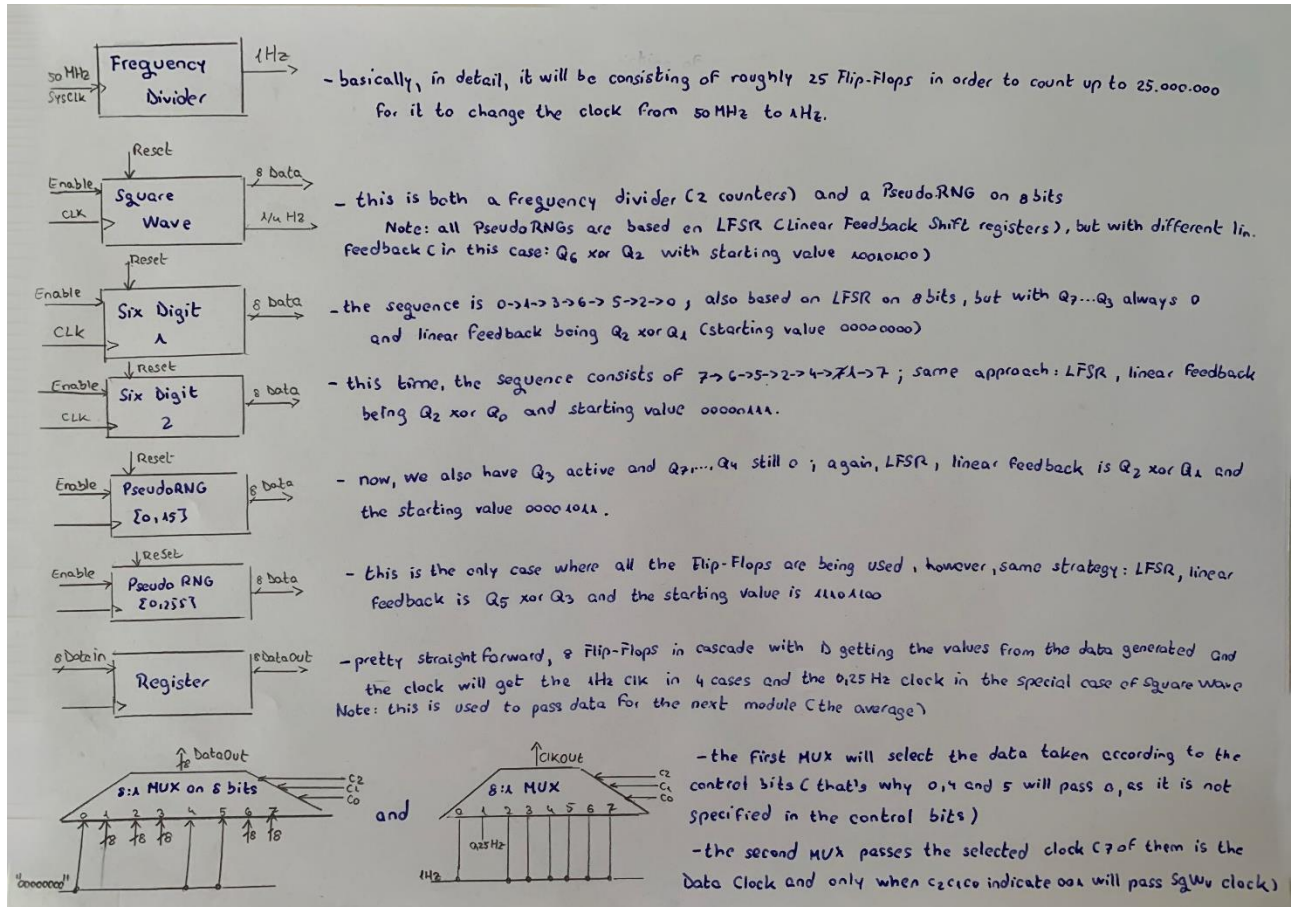 50 MHz
SysClk
Frequency
Divider
1Hz
- basically, in detail, it will be consisting of roughly 25 Flip-Flops in order to count up to 25.000.000
for it to change the clock from 50 MHz to 1Hz.
Reset
Enable
CLK
Square
Wave
8 Data
1/4 Hz
- this is both a frequency divider (2 counters) and a PseudoRNG on 8 bits
Note: all PseudoRNGs are based on LFSR (Linear Feedback Shift registers), but with different lin.
feedback (in this case: Q6 xor Q2 with starting value 10010100)
Reset
Enable
CLK
Six Digit
1
8 Data
- the sequence is 0->1->3->6->5->2->0; also based on LFSR on 8 bits, but with Q7...Q3 always 0
and linear feedback being Q2 xor Q1 (starting value 00000000)
Reset
Enable
CLK
Six Digit
2
8 Data
- this time, the sequence consists of 7->6->5->2->4->1->7; same approach: LFSR, linear feedback
being Q2 xor Q0 and starting value 00000111.
Reset
Enable
PseudoRNG
[0,15]
8 Data
- now, we also have Q3 active and Q7,..., Q4 still 0; again, LFSR, linear feedback is Q2 xor Q1 and
the starting value 00001011.
Reset
Enable
Pseudo RNG
[0,255]
8 Data
- this is the only case where all the Flip-Flops are being used, however, same strategy: LFSR, linear
feedback is Q5 xor Q3 and the starting value is 11101100
8 Datain
Register
8 DataOut
- pretty straight forward, 8 Flip-Flops in cascade with D getting the values from the data generated and
the clock will get the 1Hz clk in 4 cases and the 0,25 Hz clock in the special case of Square Wave
Note: this is used to pass data for the next module (the average)
8 DataOut
8:1 MUX on 8 bits
C2
C1
C0
0 1 2 3 4 5 6 7
8 8 8 8 8
"00000000"
and
ClkOut
8:1 MUX
C2
C1
C0
0 1 2 3 4 5 6 7
0,25 Hz
1Hz
- the first MUX will select the data taken cccording to the
control bits (that's why 0,4 and 5 will pass 0, as it is not
specified in the control bits)
- the second MUX passes the selected clock (7 of them is the
Data Clock and only when c2c1c0 indicate 001 will pass SqWv clock)